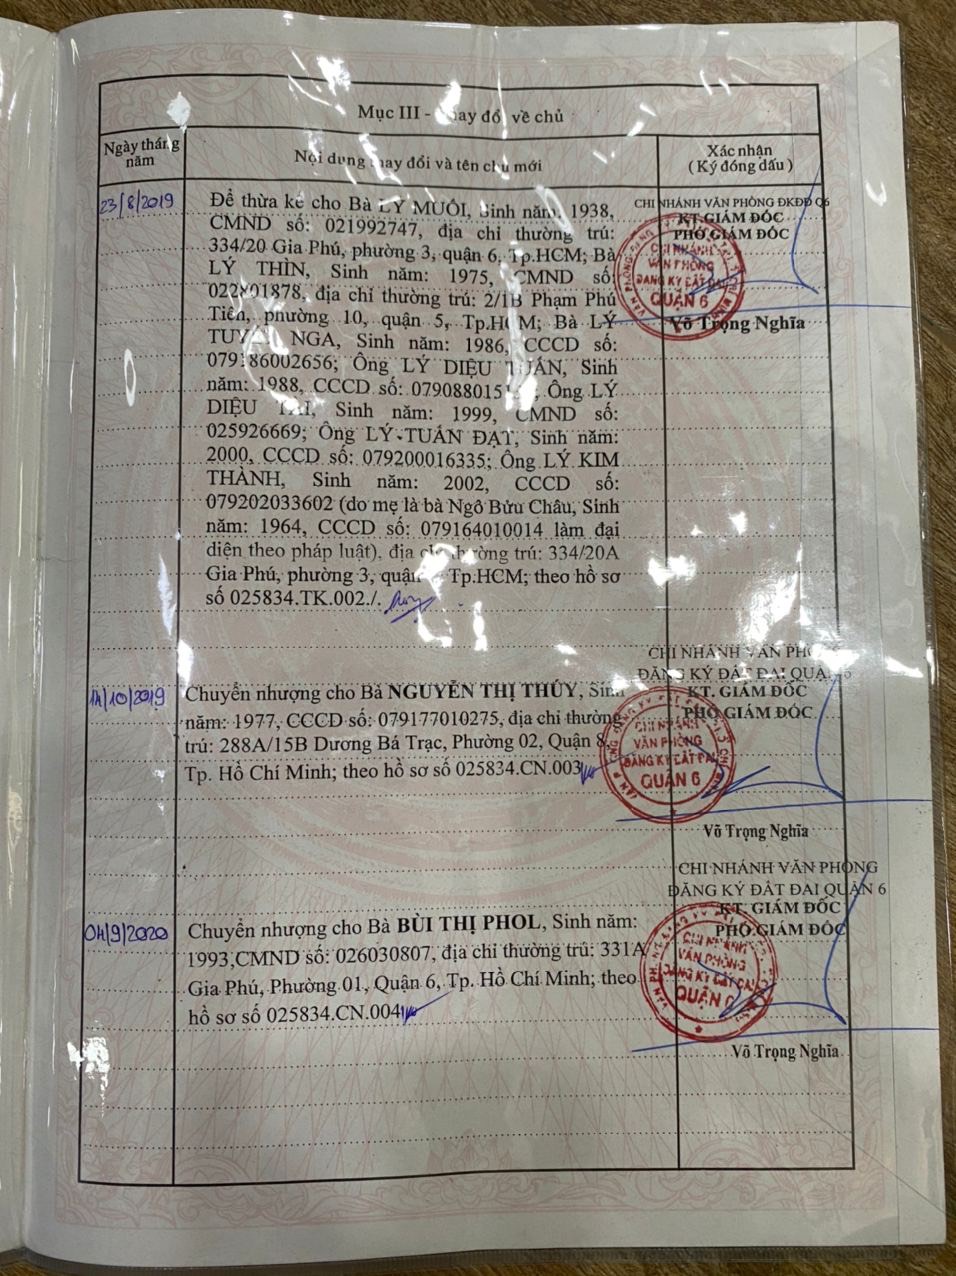 Mục III - ay đổi về chủ
Ngày tháng năm
Nội dung ay đổi và tên chủ mới
Xác nhận
( Ký đóng dấu )
23/8/2019
Để thừa kế cho Bà LÝ MUÔI, Sinh năm: 1938,
CMND số: 021992747, địa chỉ thường trú:
334/20 Gia Phú, phường 3, quận 6, Tp.HCM; Bà
LÝ THÌN, Sinh năm: 1975, CMND số:
022801878, địa chỉ thường trú: 2/1B Phạm Phú
Tiên, phường 10, quận 5, Tp.HCM; Bà LÝ
NGA, Sinh năm: 1986, CCCD số:
079186002656; Ông LÝ DIỆU Sinh
năm: 1988, CCCD số: Ông LÝ
DIỆU Sinh năm: 1999, CMND số:
025926669; Ông LÝ TUẤN ĐẠT, Sinh năm:
2000, CCCD số: 079200016335; Ông LÝ KIM
THÀNH, Sinh năm: 2002, CCCD số:
079202033602 (do mẹ là bà Ngô Bửu Châu, Sinh
năm: 1964, CCCD số: 079164010014 làm đại
diện theo pháp luật), địa chỉ thường trú: 334/20A
Gia Phú, phường 3, quận Tp.HCM; theo hồ sơ
số 025834.TK.002./.
CHI NHÁNH VĂN PHÒNG ĐKĐĐ Q6
KT.GIÁM ĐỐC
PHÓ GIÁM ĐỐC
CHI NHÁNH
VĂN PHÒNG
ĐĂNG KÝ ĐẤT ĐAI
QUẬN 6
Võ Trọng Nghĩa
14/10/2019
Chuyển nhượng cho Bà NGUYỄN THỊ THÚY, Sinh
năm: 1977, CCCD số: 079177010275, địa chỉ thường
trú: 288A/15B Dương Bá Trạc, Phường 02, Quận 8,
Tp. Hồ Chí Minh; theo hồ sơ số 025834.CN.003
CHI NHÁNH VĂN PHÒNG
ĐĂNG KÝ ĐẤT ĐAI QUẬN 6
KT. GIÁM ĐỐC
PHÓ GIÁM ĐỐC
CHI NHÁNH
VĂN PHÒNG
ĐĂNG KÝ ĐẤT ĐAI
QUẬN 6
Võ Trọng Nghĩa
04/9/2020
Chuyển nhượng cho Bà BÙI THỊ PHOL, Sinh năm:
1993,CMND số: 026030807, địa chỉ thường trú: 331A
Gia Phú, Phường 01, Quận 6, Tp. Hồ Chí Minh; theo
hồ sơ số 025834.CN.004
CHI NHÁNH VĂN PHÒNG
ĐĂNG KÝ ĐẤT ĐAI QUẬN 6
KT. GIÁM ĐỐC
PHÓ GIÁM ĐỐC
CHI NHÁNH
VĂN PHÒNG
ĐĂNG KÝ ĐẤT ĐAI
QUẬN 6
Võ Trọng Nghĩa